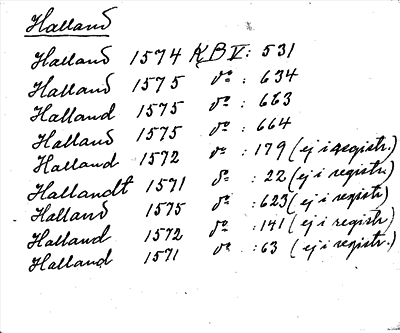 Halland
Halland 1574 KB V: 531
Halland 1575 do : 634
Halland 1575 do : 663
Halland 1575 do : 664
Halland 1572 do : 179 (ej i registr.)
Hallandt 1571 do : 22 (ej i registr.)
Halland 1575 do : 623 (ej i registr.)
Halland 1572 do : 141 (ej i registr.)
Halland 1571 do : 63 (ej i registr.)